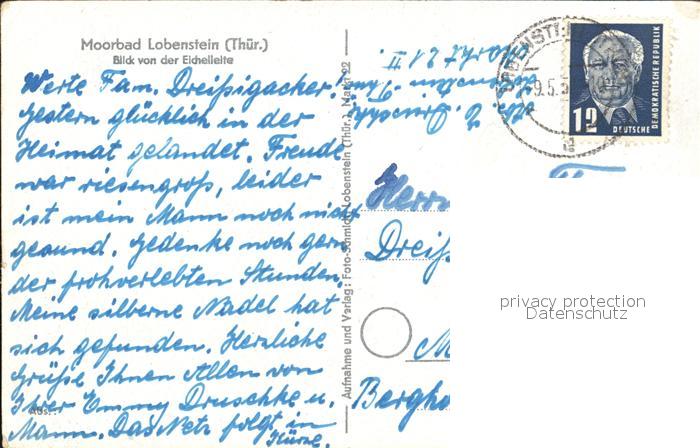 Moorbad Lobenstein (Thür.)
Blick von der Eichelleite
Werte Fam. Dreißigacker!
Gestern glücklich in der
Heimat gelandet. Freude
war riesengross, leider
ist mein Mann noch nicht
gesund. Gedenke noch gern
der frohverlebten Stunden.
Meine silberne Nadel hat
sich gefunden. Herzliche
Grüße Ihnen Allen von
Ihrer Emmy Druschke u.
Mann. Das Netz folgt in
Kürze.
Aus.
Aufnahme und Verlag: Foto-Schmidt, Lobenstein (Thür.), Markt 22
Abs. E. Druschke
LOBENSTEIN
9.5.5
a
12
DEUTSCHE
DEMOKRATISCHE REPUBLIK
Herrn
Dreiß
M
Bergho
privacy protection
Datenschutz